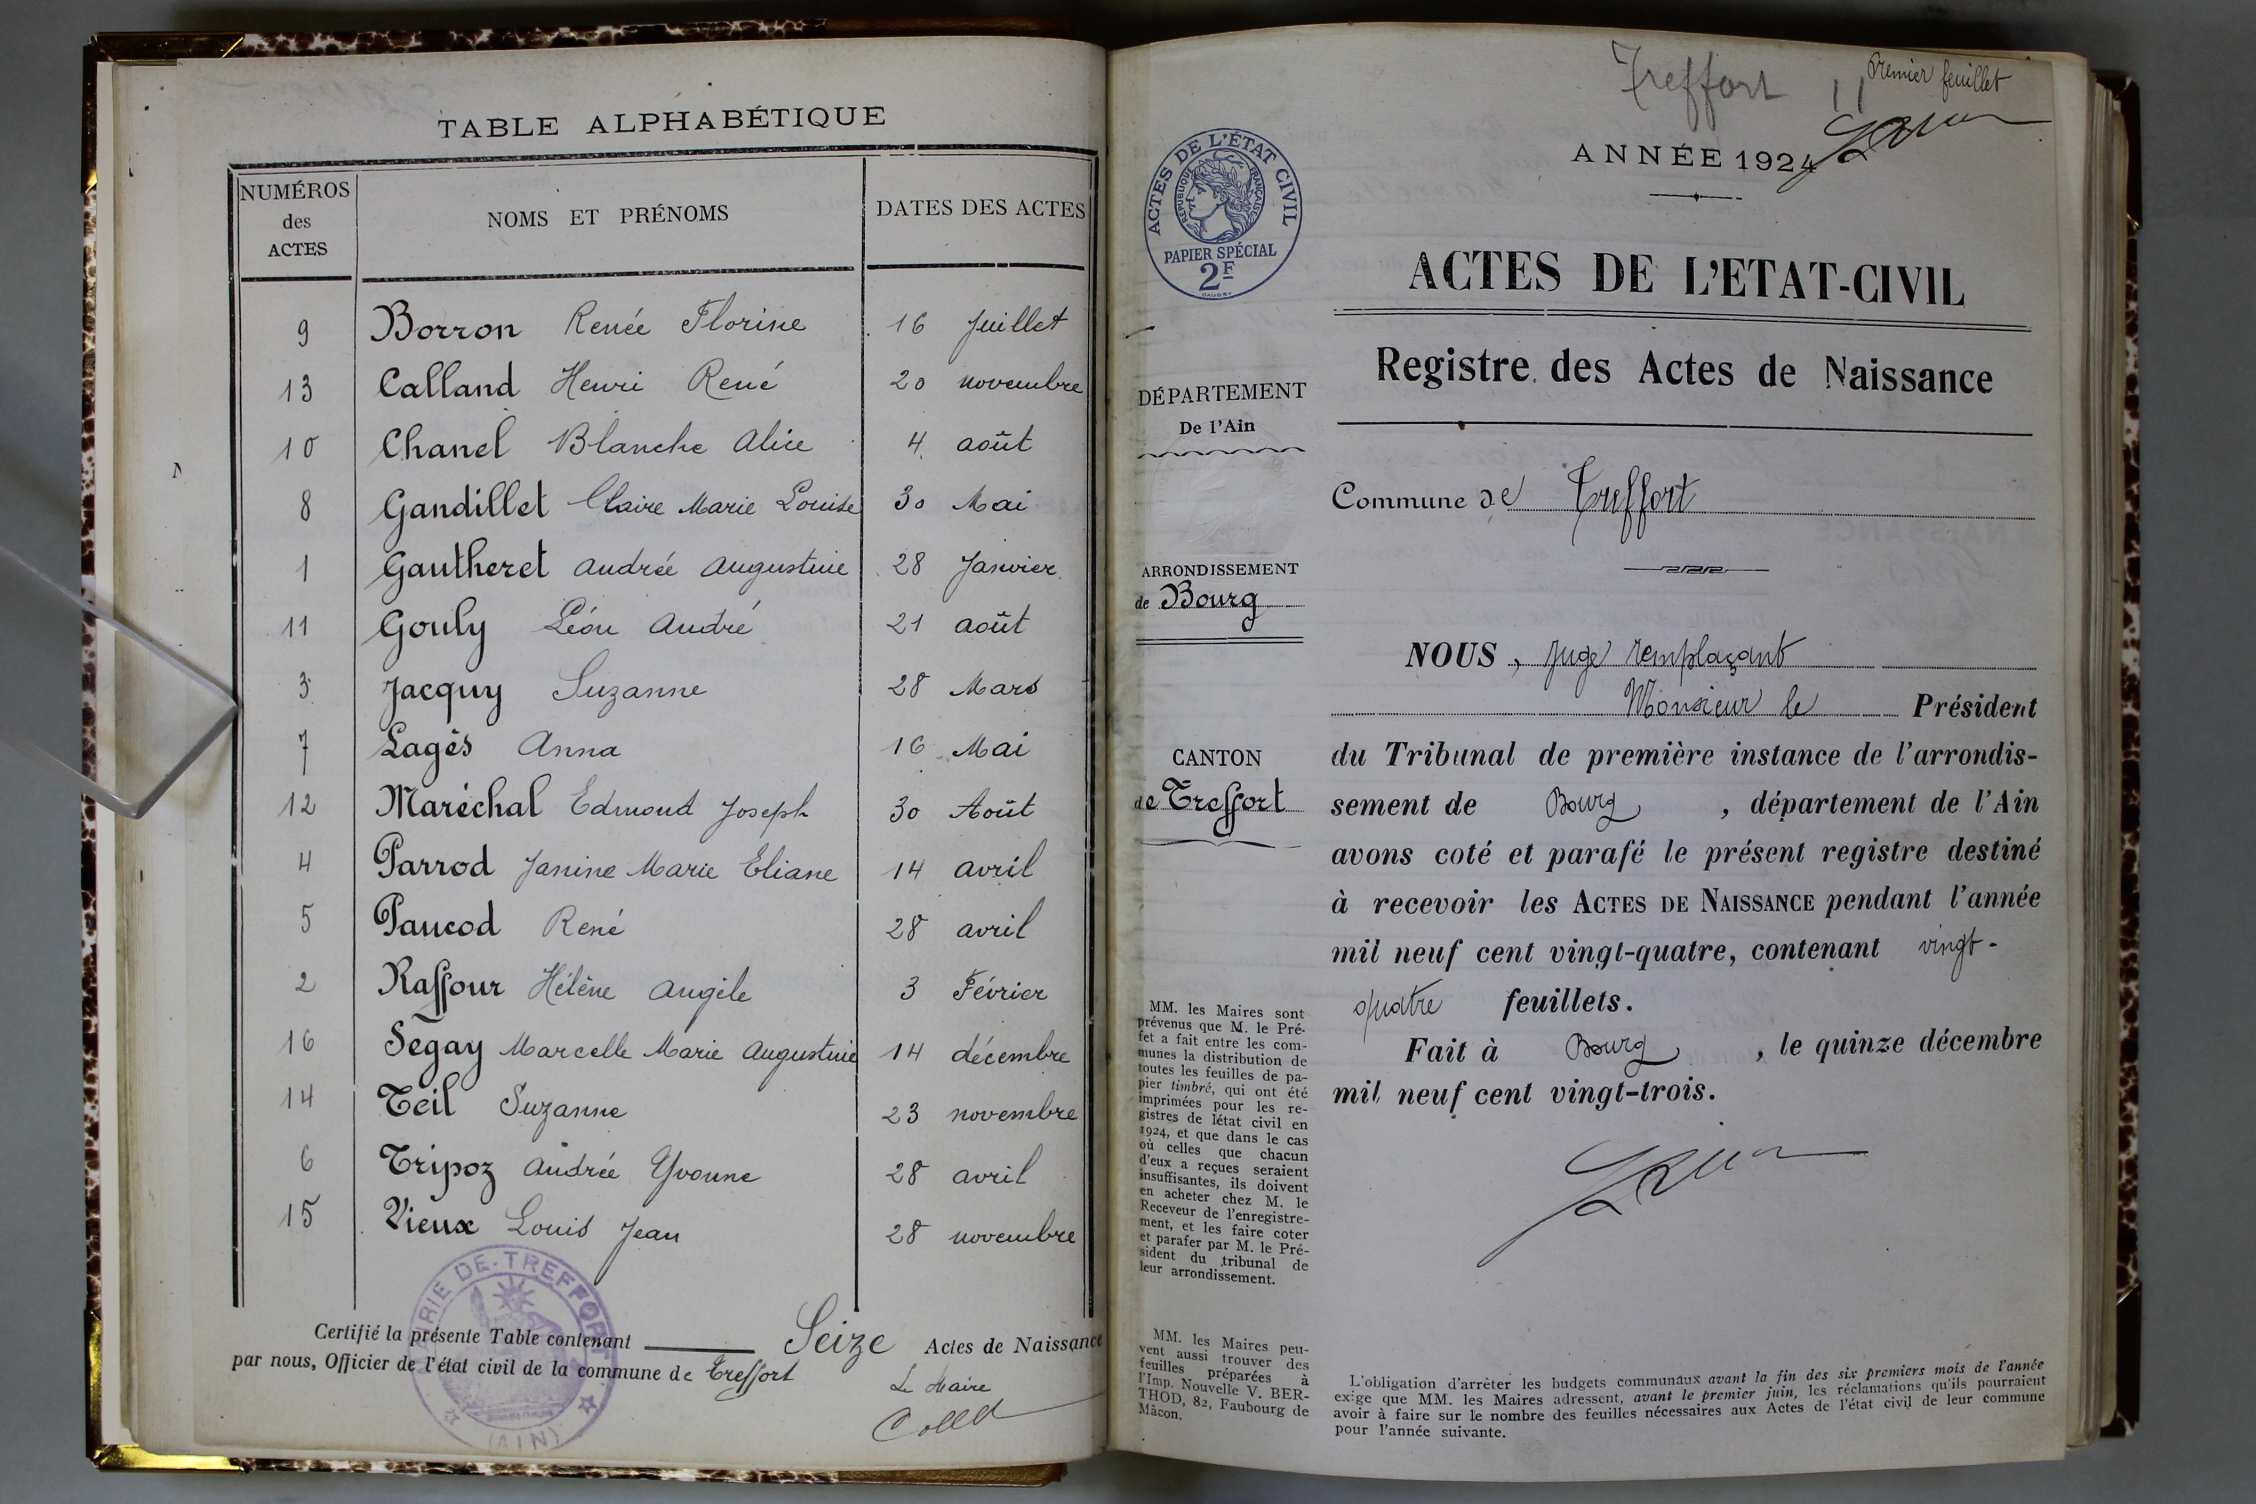 TABLE ALPHABÉTIQUE
NUMÉROS des ACTES NOMS ET PRÉNOMS DATES DES ACTES
9 Borron Renée Florine 16 Juillet
13 Calland Henri René 20 novembre
10 Chanel Blanche Alice 4 août
8 Gandillet Claire Marie Louise 30 Mai
1 Gautheret Andrée Augustine 28 Janvier
11 Gouly Léon André 21 août
3 Jacquy Suzanne 28 Mars
7 Lagès Anna 16 Mai
12 Maréchal Edmond Joseph 30 Août
4 Parrod Janine Marie Eliane 14 avril
5 Paucod René 28 avril
2 Raffour Hélène Angèle 3 Février
16 Ségay Marcelle Marie Augustine 14 décembre
14 Teil Suzanne 23 novembre
6 Tripoz Andrée Yvonne 28 avril
15 Vieux Louis Jean 28 novembre
Certifié la présente Table contenant Seize Actes de Naissance
par nous, Officier de l'état civil de la commune de Treffort
Le Maire
MAIRIE DE TREFFORT
(AIN)
Treffort 11
Premier feuillet
ANNÉE 1924
ACTES DE L'ÉTAT CIVIL
RÉPUBLIQUE FRANÇAISE
PAPIER SPÉCIAL
2F
ACTES DE L'ETAT-CIVIL
Registre des Actes de Naissance
DÉPARTEMENT
De l'Ain
Commune de Treffort
ARRONDISSEMENT
de Bourg
CANTON
de Treffort
NOUS, Juge remplaçant
Monsieur le Président
du Tribunal de première instance de l'arrondis-
sement de Bourg, département de l'Ain
avons coté et parafé le présent registre destiné
à recevoir les ACTES DE NAISSANCE pendant l'année
mil neuf cent vingt-quatre, contenant vingt-
quatre feuillets.
Fait à Bourg, le quinze décembre
mil neuf cent vingt-trois.
MM. les Maires sont
prévenus que M. le Pré-
fet a fait entre les com-
munes la distribution de
toutes les feuilles de pa-
pier timbré, qui ont été
imprimées pour les re-
gistres de létat civil en
1924, et que dans le cas
où celles que chacun
d'eux a reçues seraient
insuffisantes, ils doivent
en acheter chez M. le
Receveur de l'enregistre-
ment, et les faire coter
et parafer par M. le Pré-
sident du tribunal de
leur arrondissement.
MM. les Maires peu-
vent aussi trouver des
feuilles préparées à
l'Imp. Nouvelle V. BER-
THOD, 82, Faubourg de
Mâcon.
L'obligation d'arrêter les budgets communaux avant la fin des six premiers mois de l'année
exige que MM. les Maires adressent, avant le premier juin, les réclamations qu'ils pourraient
avoir à faire sur le nombre des feuilles nécessaires aux Actes de l'état civil de leur commune
pour l'année suivante.